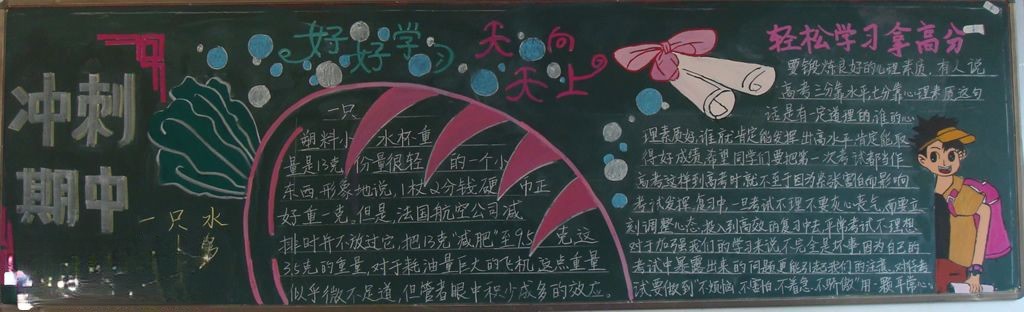 冲刺
期中
好好学习
天天向上
轻松学习拿高分
一只水
一只
塑料小 水杯重
量是13克 份量很轻 的一个小
东西 形象地说,1枚2分钱硬 币正
好重一克,但是,法国航空公司减
排时并不放过它,把13克"减肥"至9.5 克,这
3.5克的重量,对于耗油量巨大的飞机,这点重量
似乎微不足道,但管者眼中积少成多的效应。
要锻炼良好的心理素质,有人说
高考三分靠水平七分靠心理素质这句
话是有一定道理的谁的心
理素质好,谁就肯定能发挥出高水平肯定能取
得好成绩,希望同学们要把第一次考试都当作
高考这样到高考时就不至于因为紧张害怕而影响
考试发挥,复习中,一旦考试不理不要灰心丧气,而要立
刻调整心态,投入到高效的复习中去,平常考试不理想
对于加强我们的学习来说不完全是坏事因为自己的
考试中暴露出来的问题更能引起我们的注意,对任考
次要做到"不烦恼,不害怕,不着急,不骄傲"用一颗平常心。